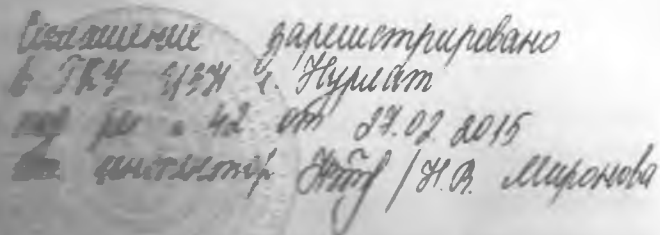 Соглашение зарегистрировано
в ГКУ ЦЗН г. Нурлат
под рег № 42 от 27.02 2015
инспектор / Н.В. Миронова